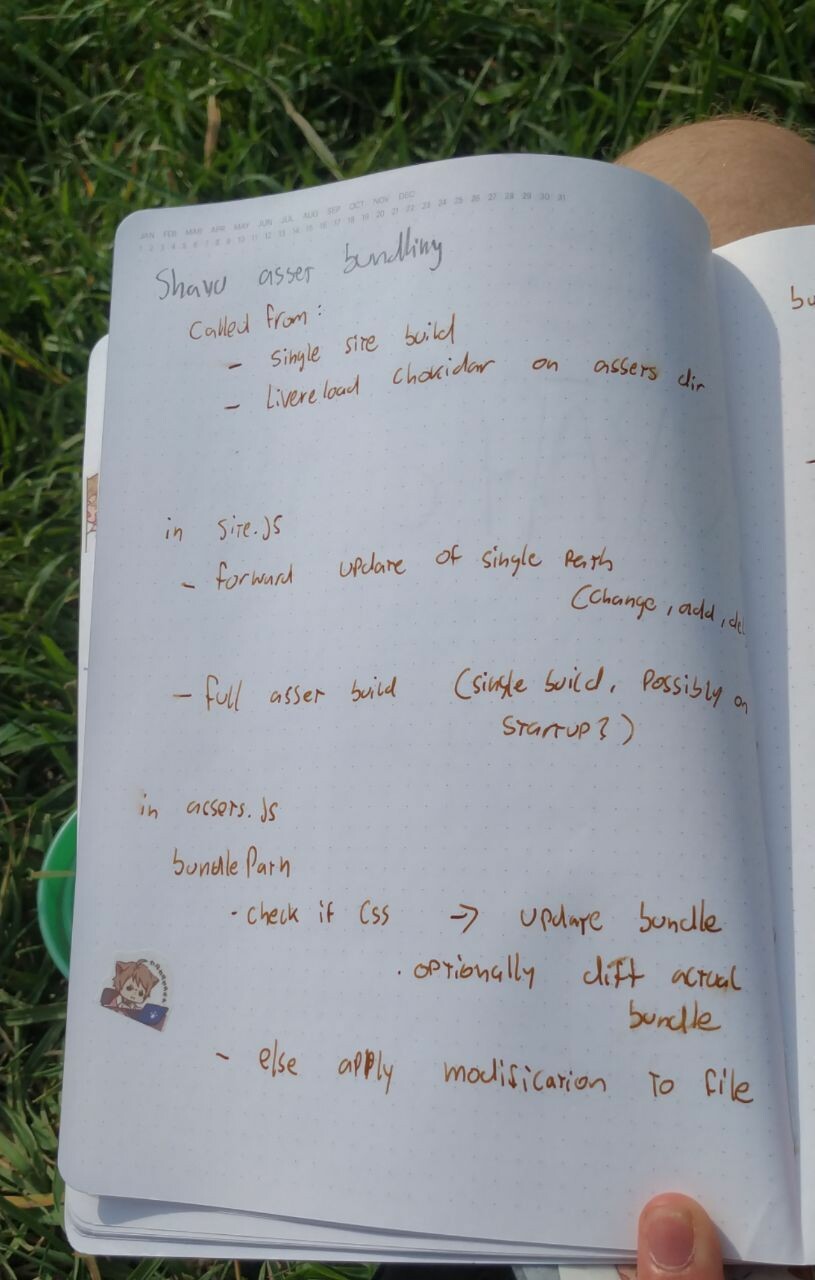 JAN FEB MAR APR MAY JUN JUL AUG SEP OCT NOV DEC
1 2 3 4 5 6 7 8 9 10 11 12 13 14 15 16 17 18 19 20 21 22 23 24 25 26 27 28 29 30 31
asset bundling
Called from:
- single site build
- Livereload chokidar on assets dir
in site.js
- forward update of single path
(change, add, del
- full asset build (single build, possibly on
startup?)
in assets.js
bundlePath
- check if css → update bundle
• optionally diff actual
bundle
- else apply modification to file
bu